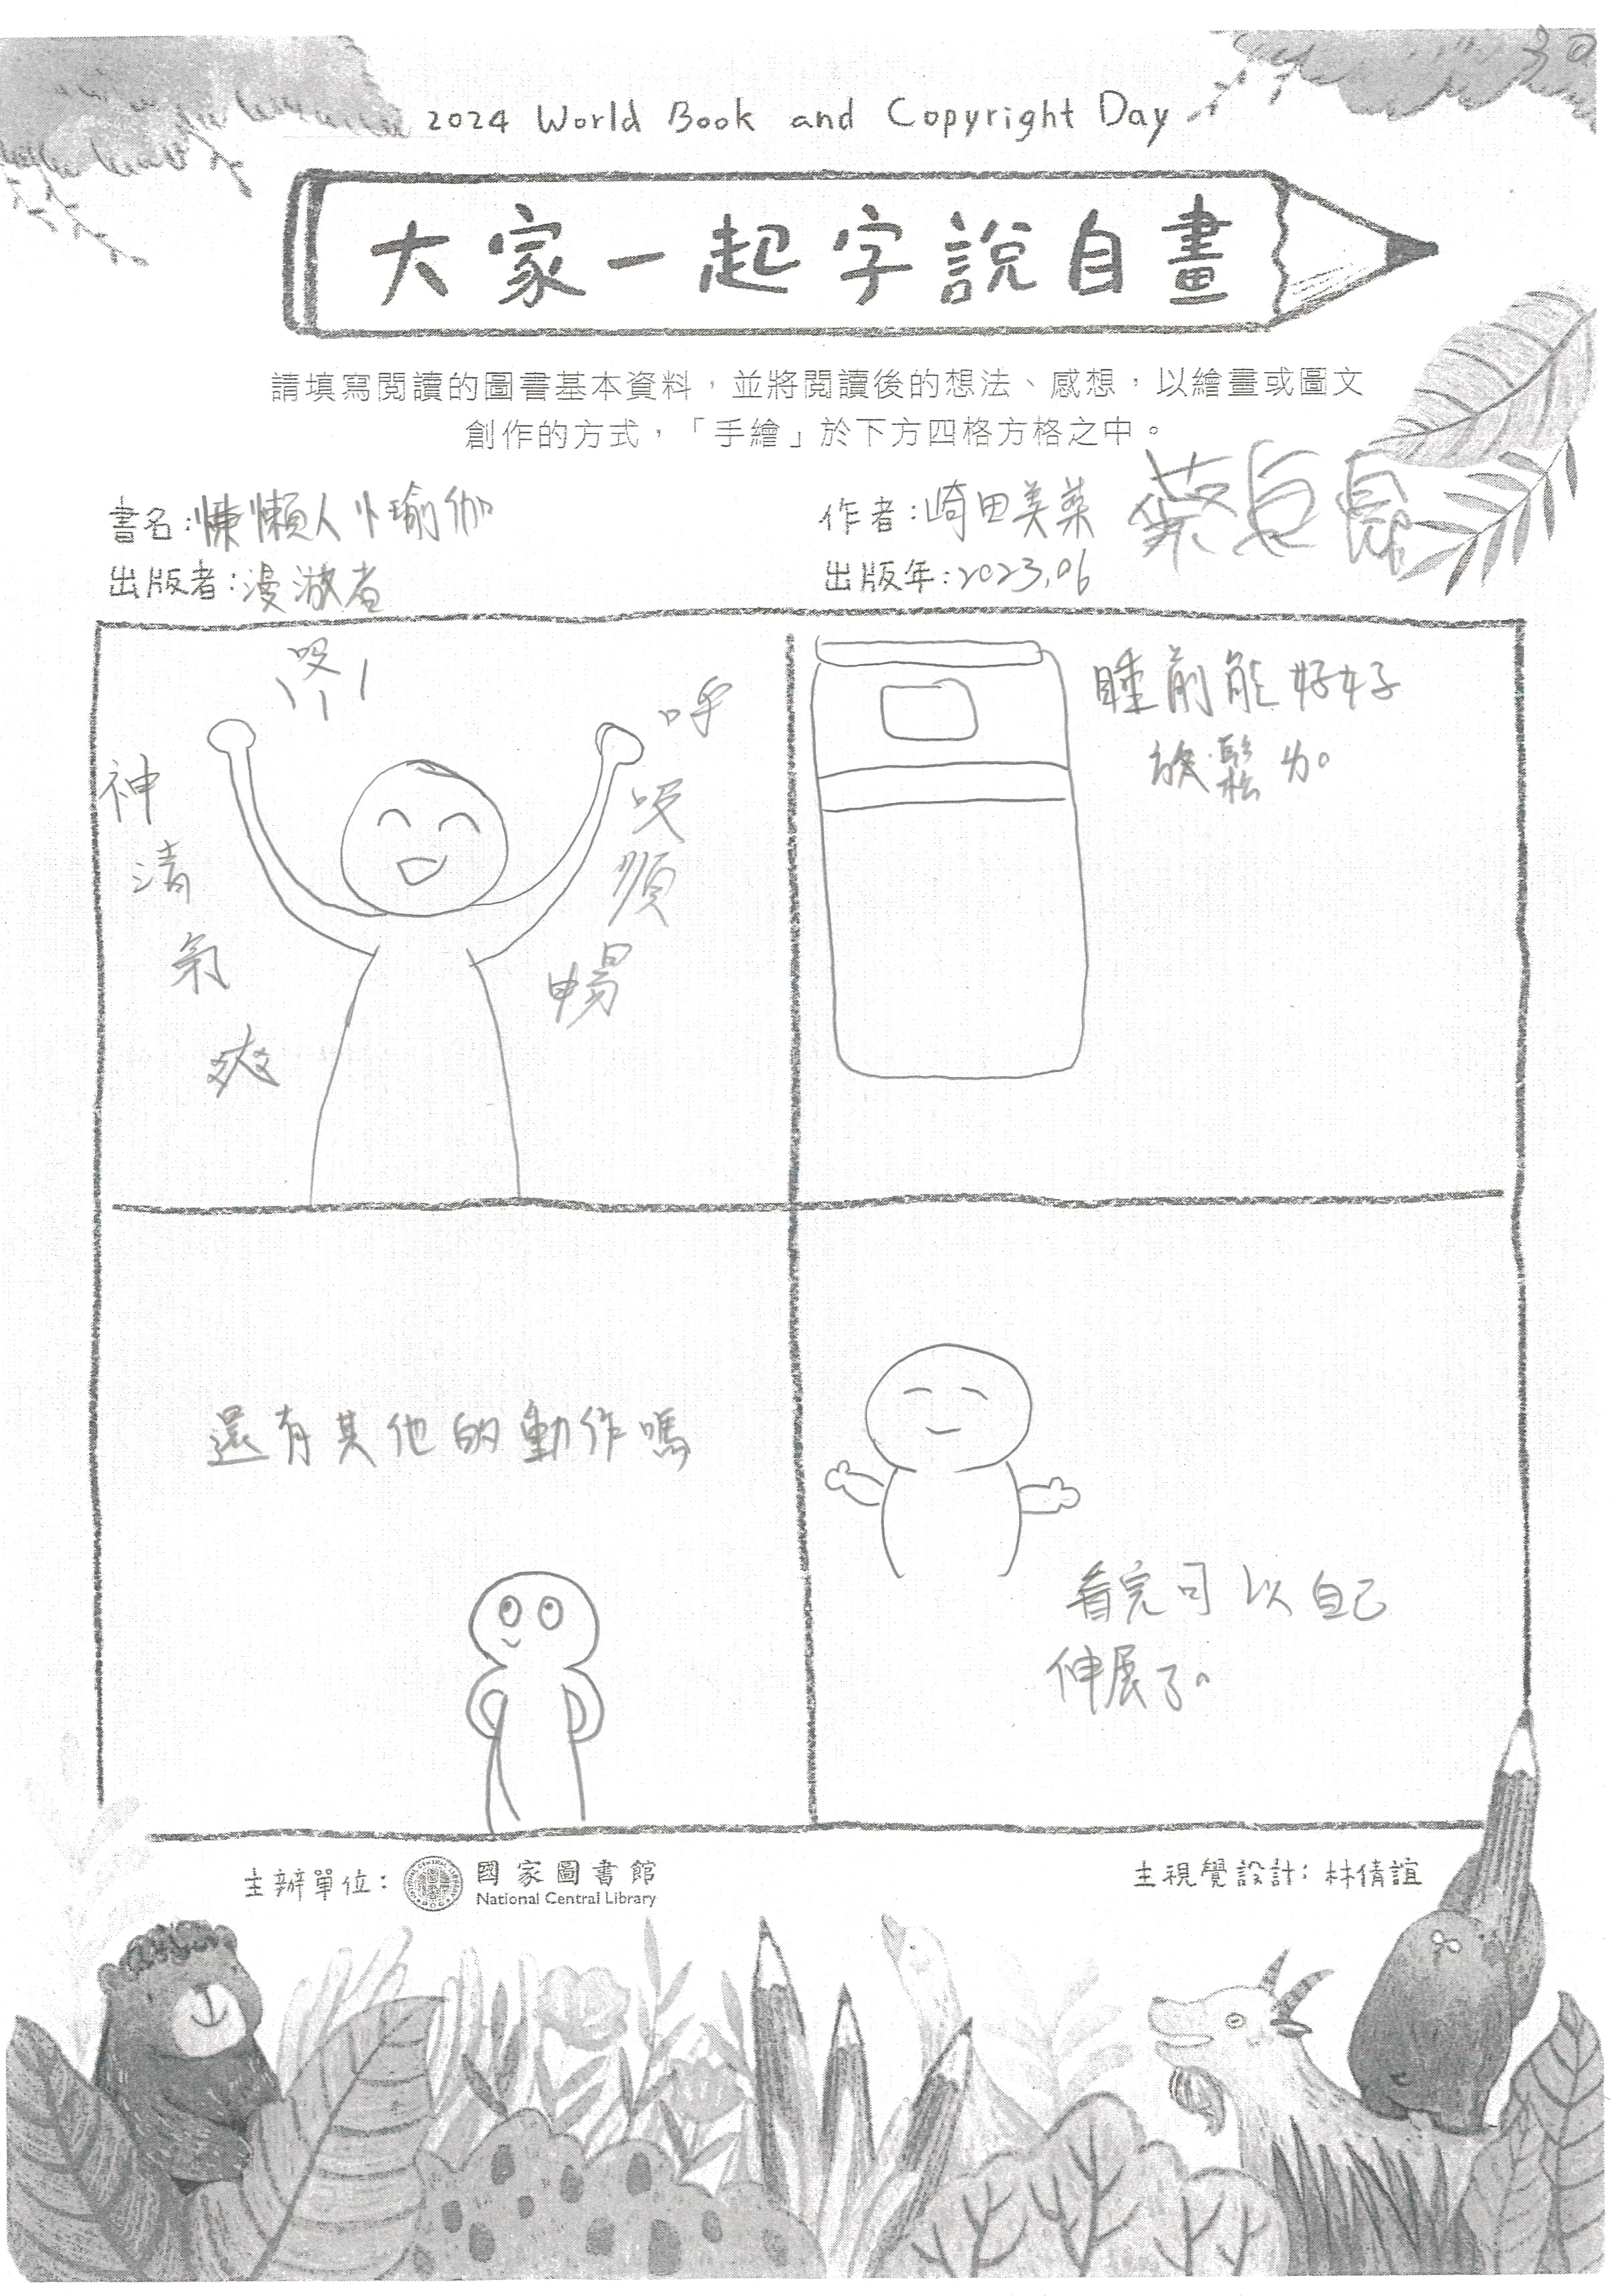 30
2024 World Book and Copyright Day
大家一起字說自畫
請填寫閱讀的圖書基本資料，並將閱讀後的想法、感想，以繪畫或圖文
創作的方式，「手繪」於下方四格方格之中。
書名：慵懶人小瑜伽
作者：崎田美菜
出版者：漫遊者
出版年：2023.06
吸
呼
吸
順
暢
神
清
氣
爽
睡前能好好
放鬆ㄌ。
還有其他的動作嗎
看完可以自己
伸展了。
主辦單位：國家圖書館
National Central Library
主視覺設計：林倩誼